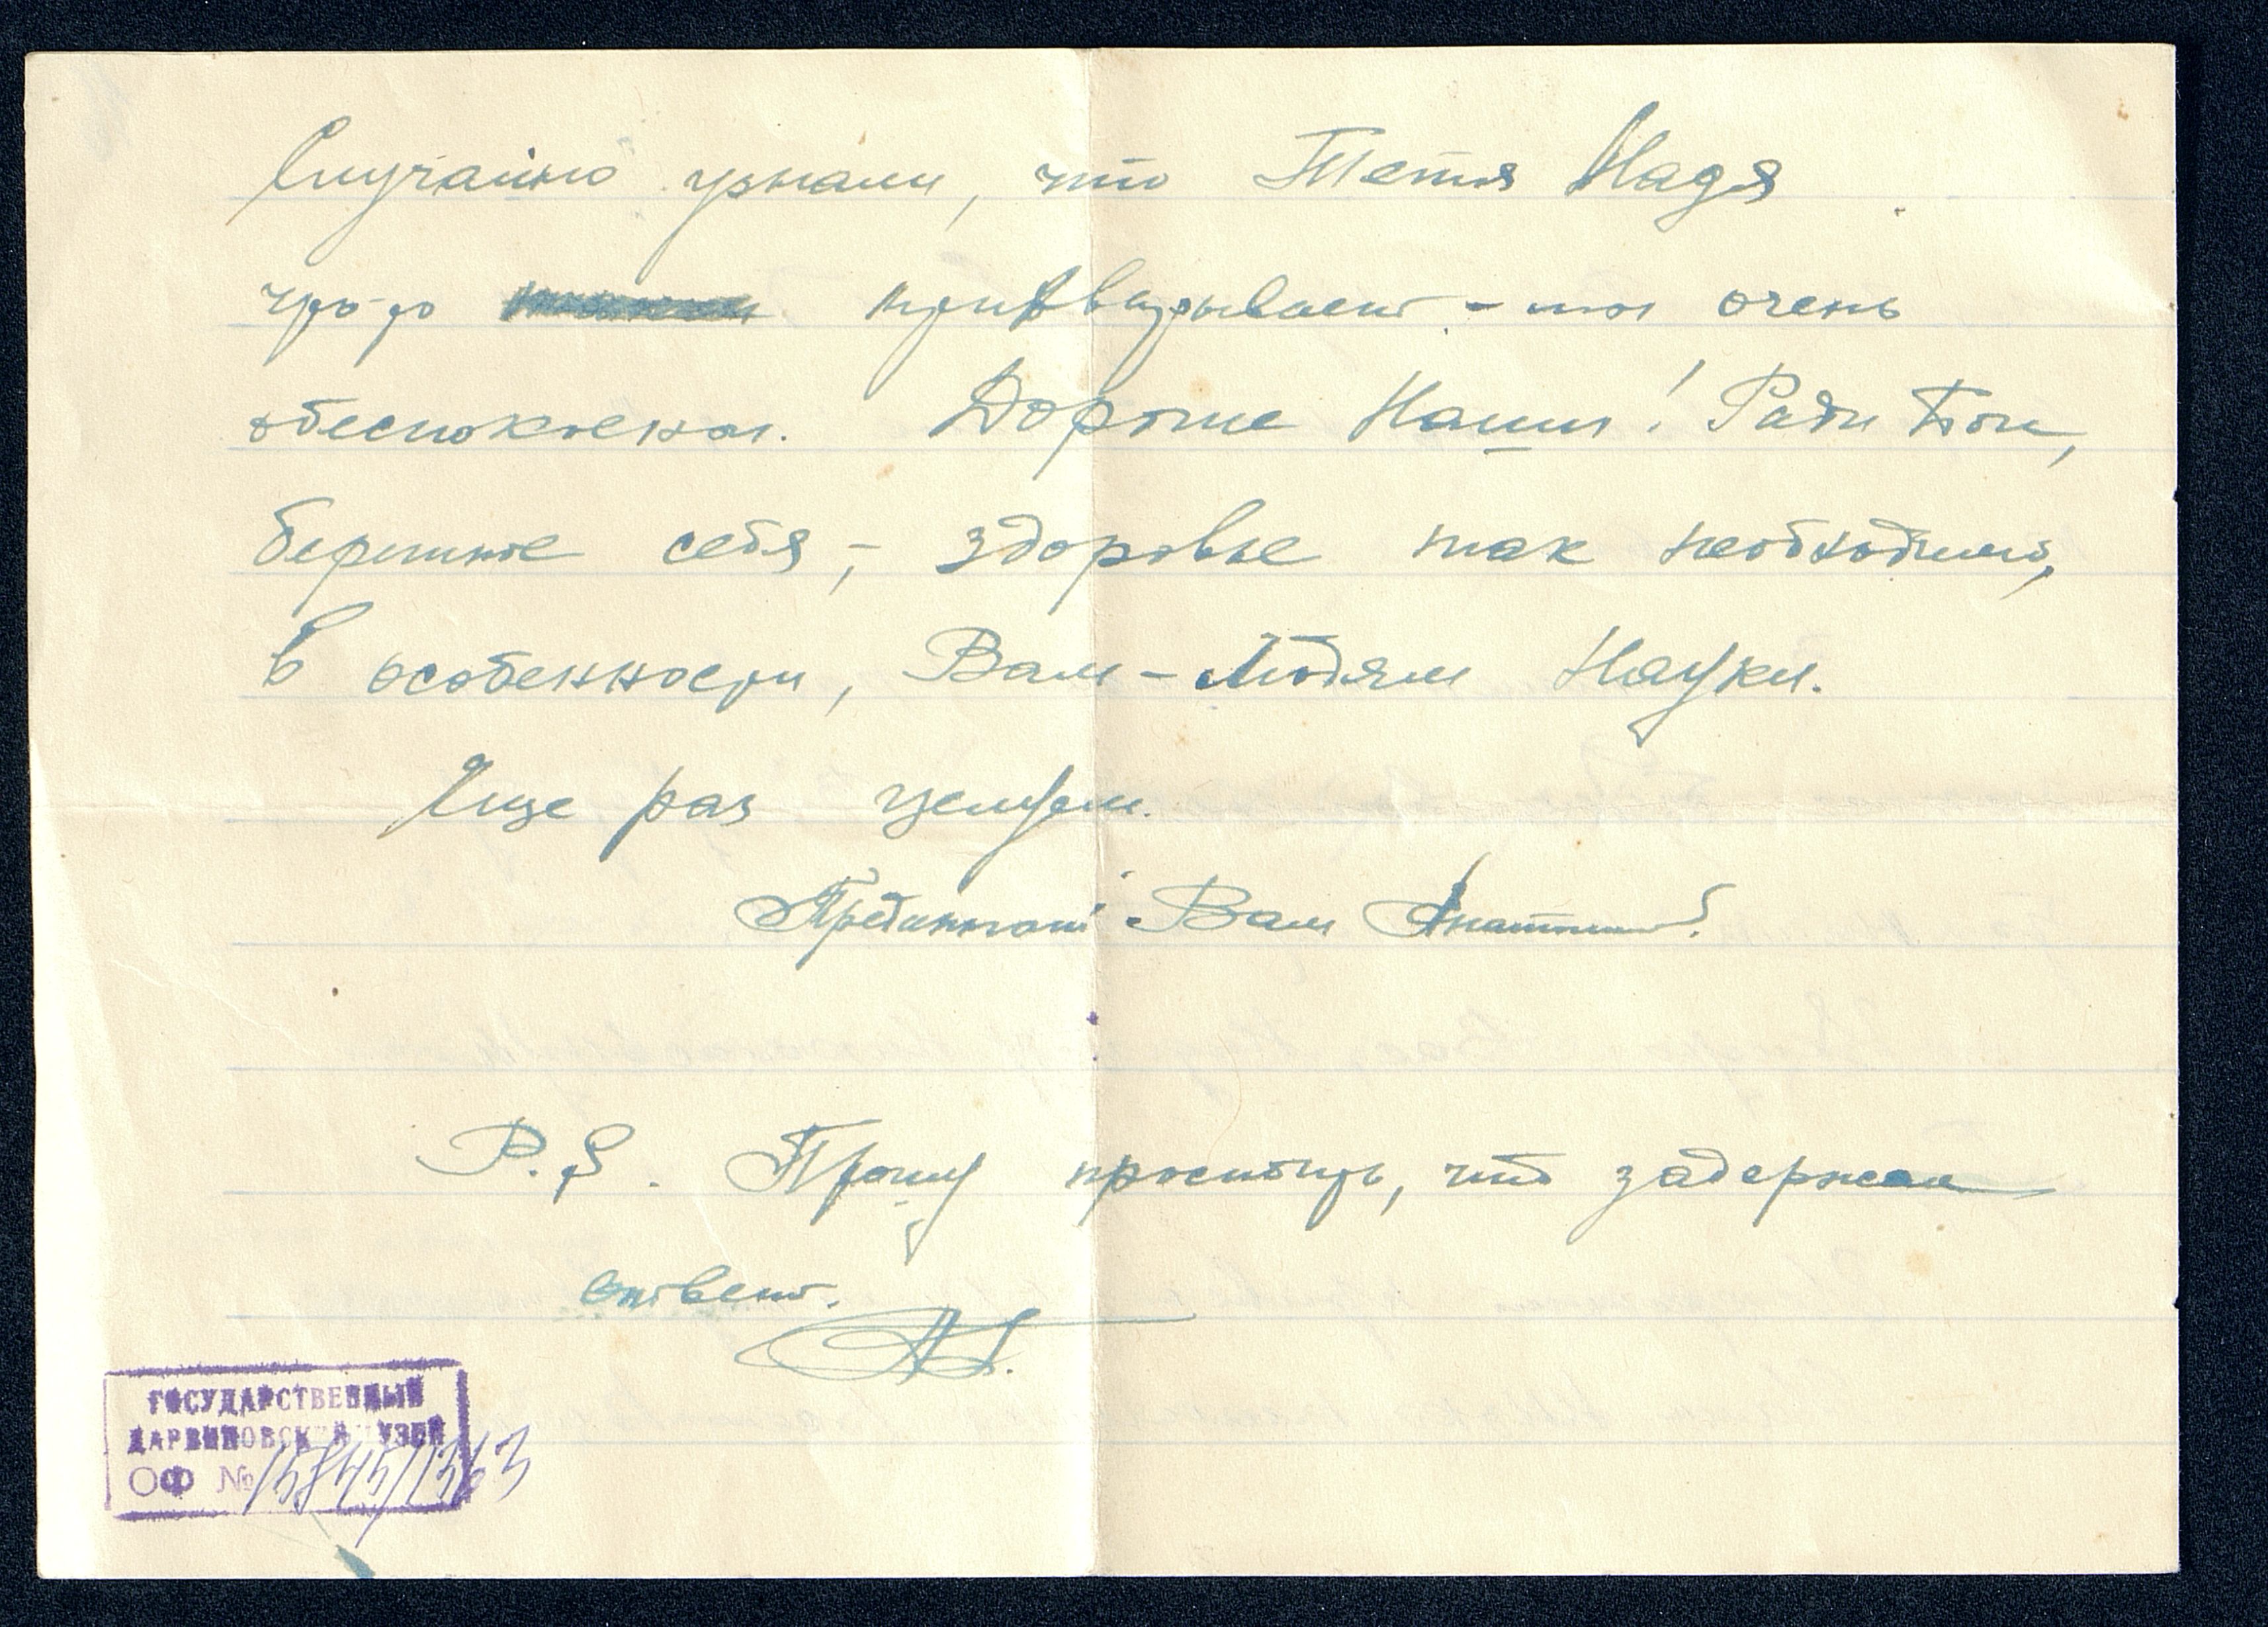 Случайно узнали, что Тетя Надя
что-то прихварывает - мы очень
обеспокоены. Дорогие Наши! Ради Бога,
берегите себя, - здоровье так необходимо,
в особенности, Вам - Людям Науки.
Еще раз целуем.
Преданный Вам Анатолий.
P.S. Прошу простить, что задержал
ответ.
ГОСУДАРСТВЕННЫЙ
ДАРВИНОВСКИЙ МУЗЕЙ
ОФ № 15845/1363